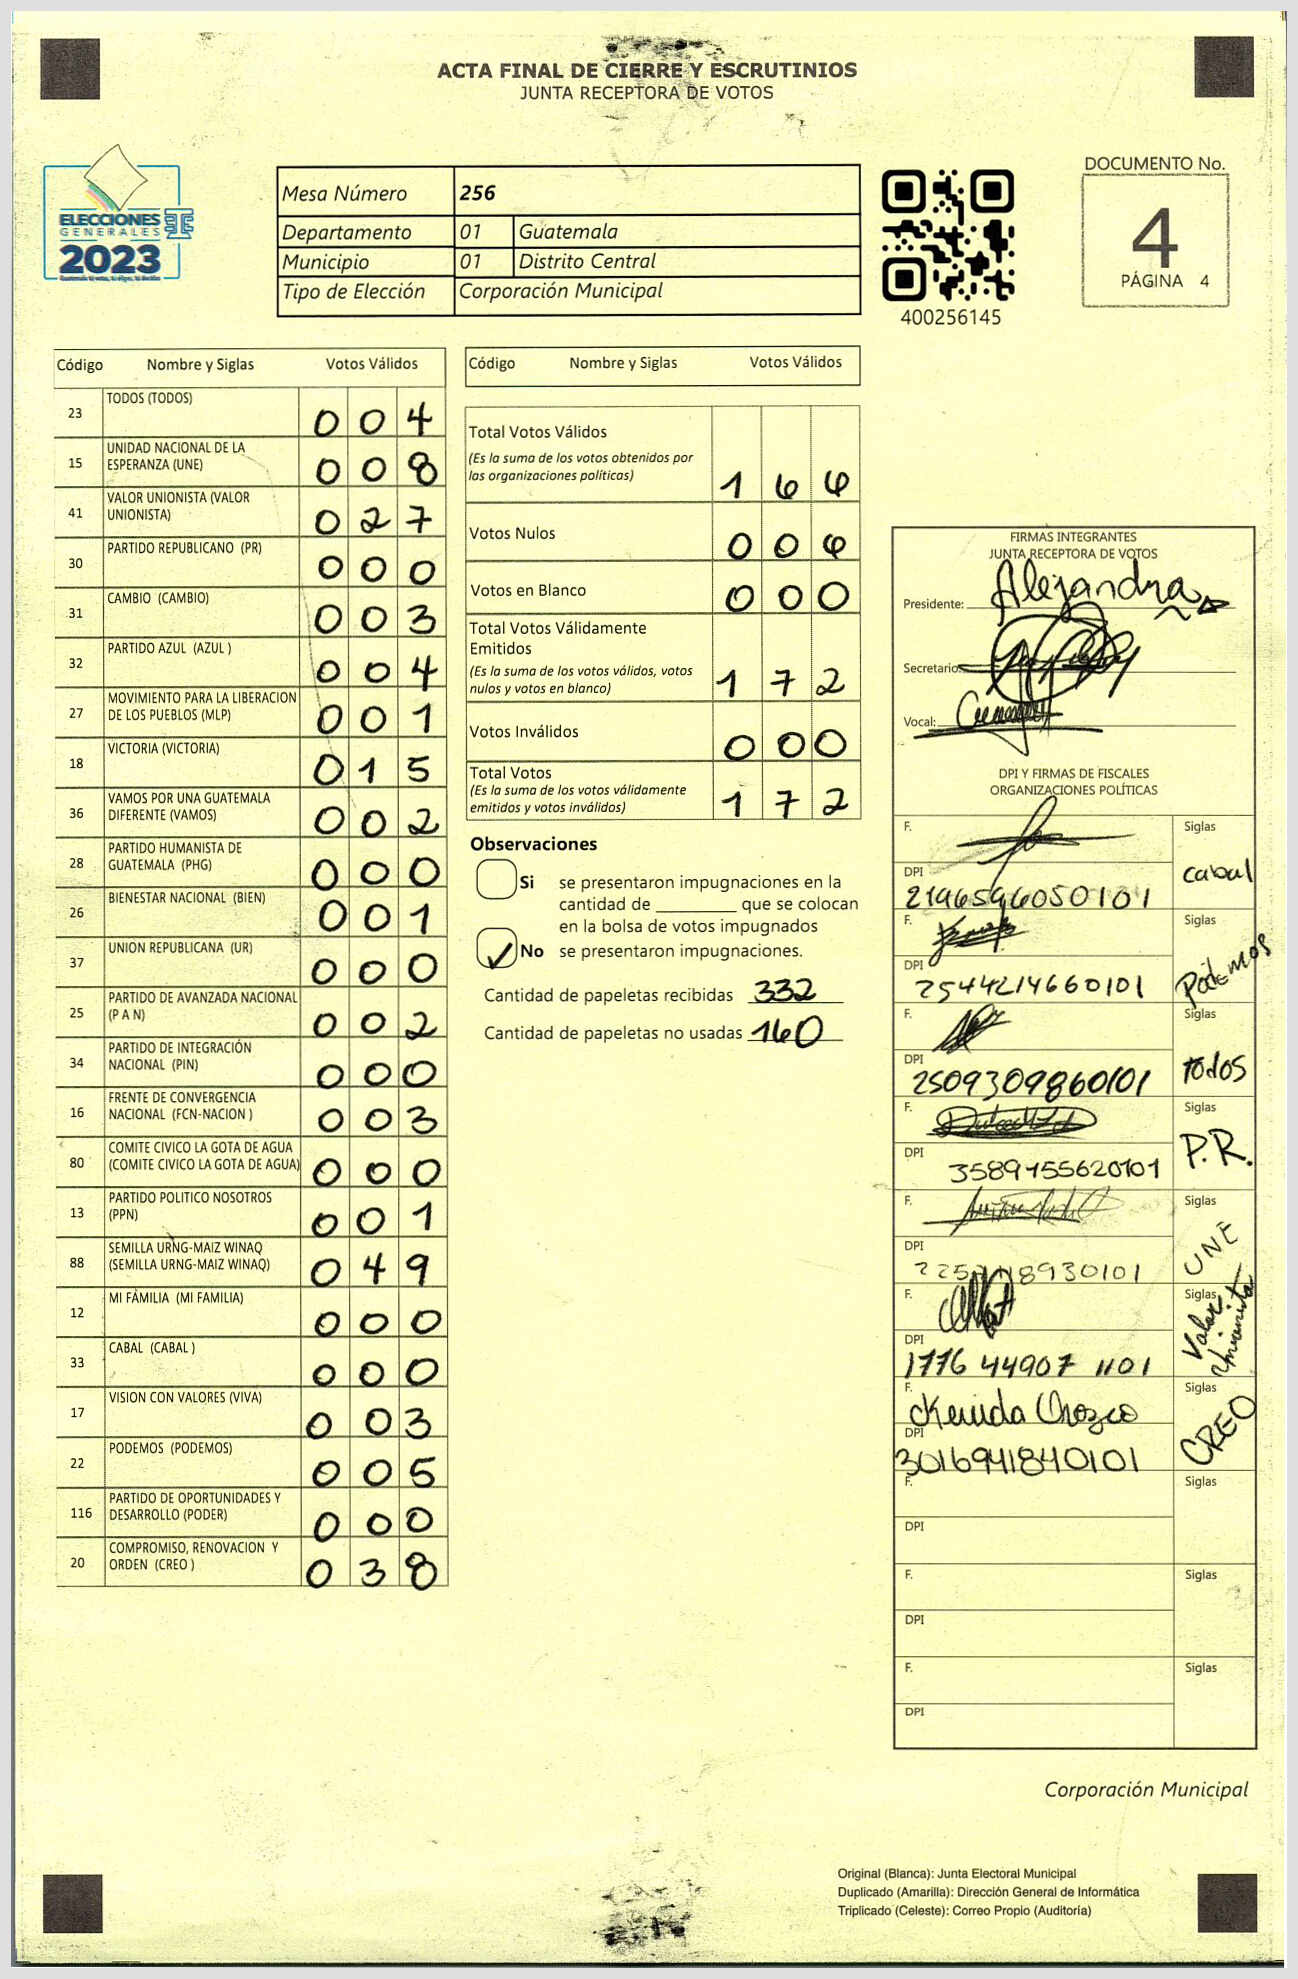 ACTA FINAL DE CIERRE Y ESCRUTINIOS
JUNTA RECEPTORA DE VOTOS
ELECCIONES
GENERALES
2023
Mesa Número 256
Departamento 01 Guatemala
Municipio 01 Distrito Central
Tipo de Elección Corporación Municipal
400256145
DOCUMENTO No.
4
PÁGINA 4
Código Nombre y Siglas Votos Válidos
23 TODOS (TODOS) 0 0 4
15 UNIDAD NACIONAL DE LA
ESPERANZA (UNE) 0 0 8
41 VALOR UNIONISTA (VALOR
UNIONISTA) 0 2 7
30 PARTIDO REPUBLICANO (PR) 0 0 0
31 CAMBIO (CAMBIO) 0 0 3
32 PARTIDO AZUL (AZUL ) 0 0 4
27 MOVIMIENTO PARA LA LIBERACION
DE LOS PUEBLOS (MLP) 0 0 1
18 VICTORIA (VICTORIA) 0 1 5
36 VAMOS POR UNA GUATEMALA
DIFERENTE (VAMOS) 0 0 2
28 PARTIDO HUMANISTA DE
GUATEMALA (PHG) 0 0 0
26 BIENESTAR NACIONAL (BIEN) 0 0 1
37 UNION REPUBLICANA (UR) 0 0 0
25 PARTIDO DE AVANZADA NACIONAL
(P A N) 0 0 2
34 PARTIDO DE INTEGRACIÓN
NACIONAL (PIN) 0 0 0
16 FRENTE DE CONVERGENCIA
NACIONAL (FCN-NACION ) 0 0 3
80 COMITE CIVICO LA GOTA DE AGUA
(COMITE CIVICO LA GOTA DE AGUA) 0 0 0
13 PARTIDO POLITICO NOSOTROS
(PPN) 0 0 1
88 SEMILLA URNG-MAIZ WINAQ
(SEMILLA URNG-MAIZ WINAQ) 0 4 9
12 MI FAMILIA (MI FAMILIA) 0 0 0
33 CABAL (CABAL ) 0 0 0
17 VISION CON VALORES (VIVA) 0 0 3
22 PODEMOS (PODEMOS) 0 0 5
116 PARTIDO DE OPORTUNIDADES Y
DESARROLLO (PODER) 0 0 0
20 COMPROMISO, RENOVACION Y
ORDEN (CREO ) 0 3 8
Código Nombre y Siglas Votos Válidos
Total Votos Válidos
(Es la suma de los votos obtenidos por
las organizaciones políticas) 1 6 6
Votos Nulos 0 0 6
Votos en Blanco 0 0 0
Total Votos Válidamente
Emitidos
(Es la suma de los votos válidos, votos
nulos y votos en blanco) 1 7 2
Votos Inválidos 0 0 0
Total Votos
(Es la suma de los votos válidamente
emitidos y votos inválidos) 1 7 2
Observaciones
Si se presentaron impugnaciones en la
cantidad de que se colocan
en la bolsa de votos impugnados
No se presentaron impugnaciones.
Cantidad de papeletas recibidas 332
Cantidad de papeletas no usadas 160
FIRMAS INTEGRANTES
JUNTA RECEPTORA DE VOTOS
Presidente: Alejandra
Secretario:
Vocal:
DPI Y FIRMAS DE FISCALES
ORGANIZACIONES POLÍTICAS
F. Siglas
cabal
DPI
2196596050101
F. Siglas
Podemos
DPI
2544214660101
F. Siglas
Todos
DPI
2509309860101
F. Siglas
P.R.
DPI
3589455620101
F. Siglas
UNE
DPI
F. Siglas
Valor
Unionista
DPI
1776 44907 1101
F. Siglas
Kenida Orozco
CREO
DPI
3016941840101
F. Siglas
DPI
F. Siglas
DPI
F. Siglas
DPI
Corporación Municipal
Original (Blanca): Junta Electoral Municipal
Duplicado (Amarilla): Dirección General de Informática
Triplicado (Celeste): Correo Propio (Auditoría)